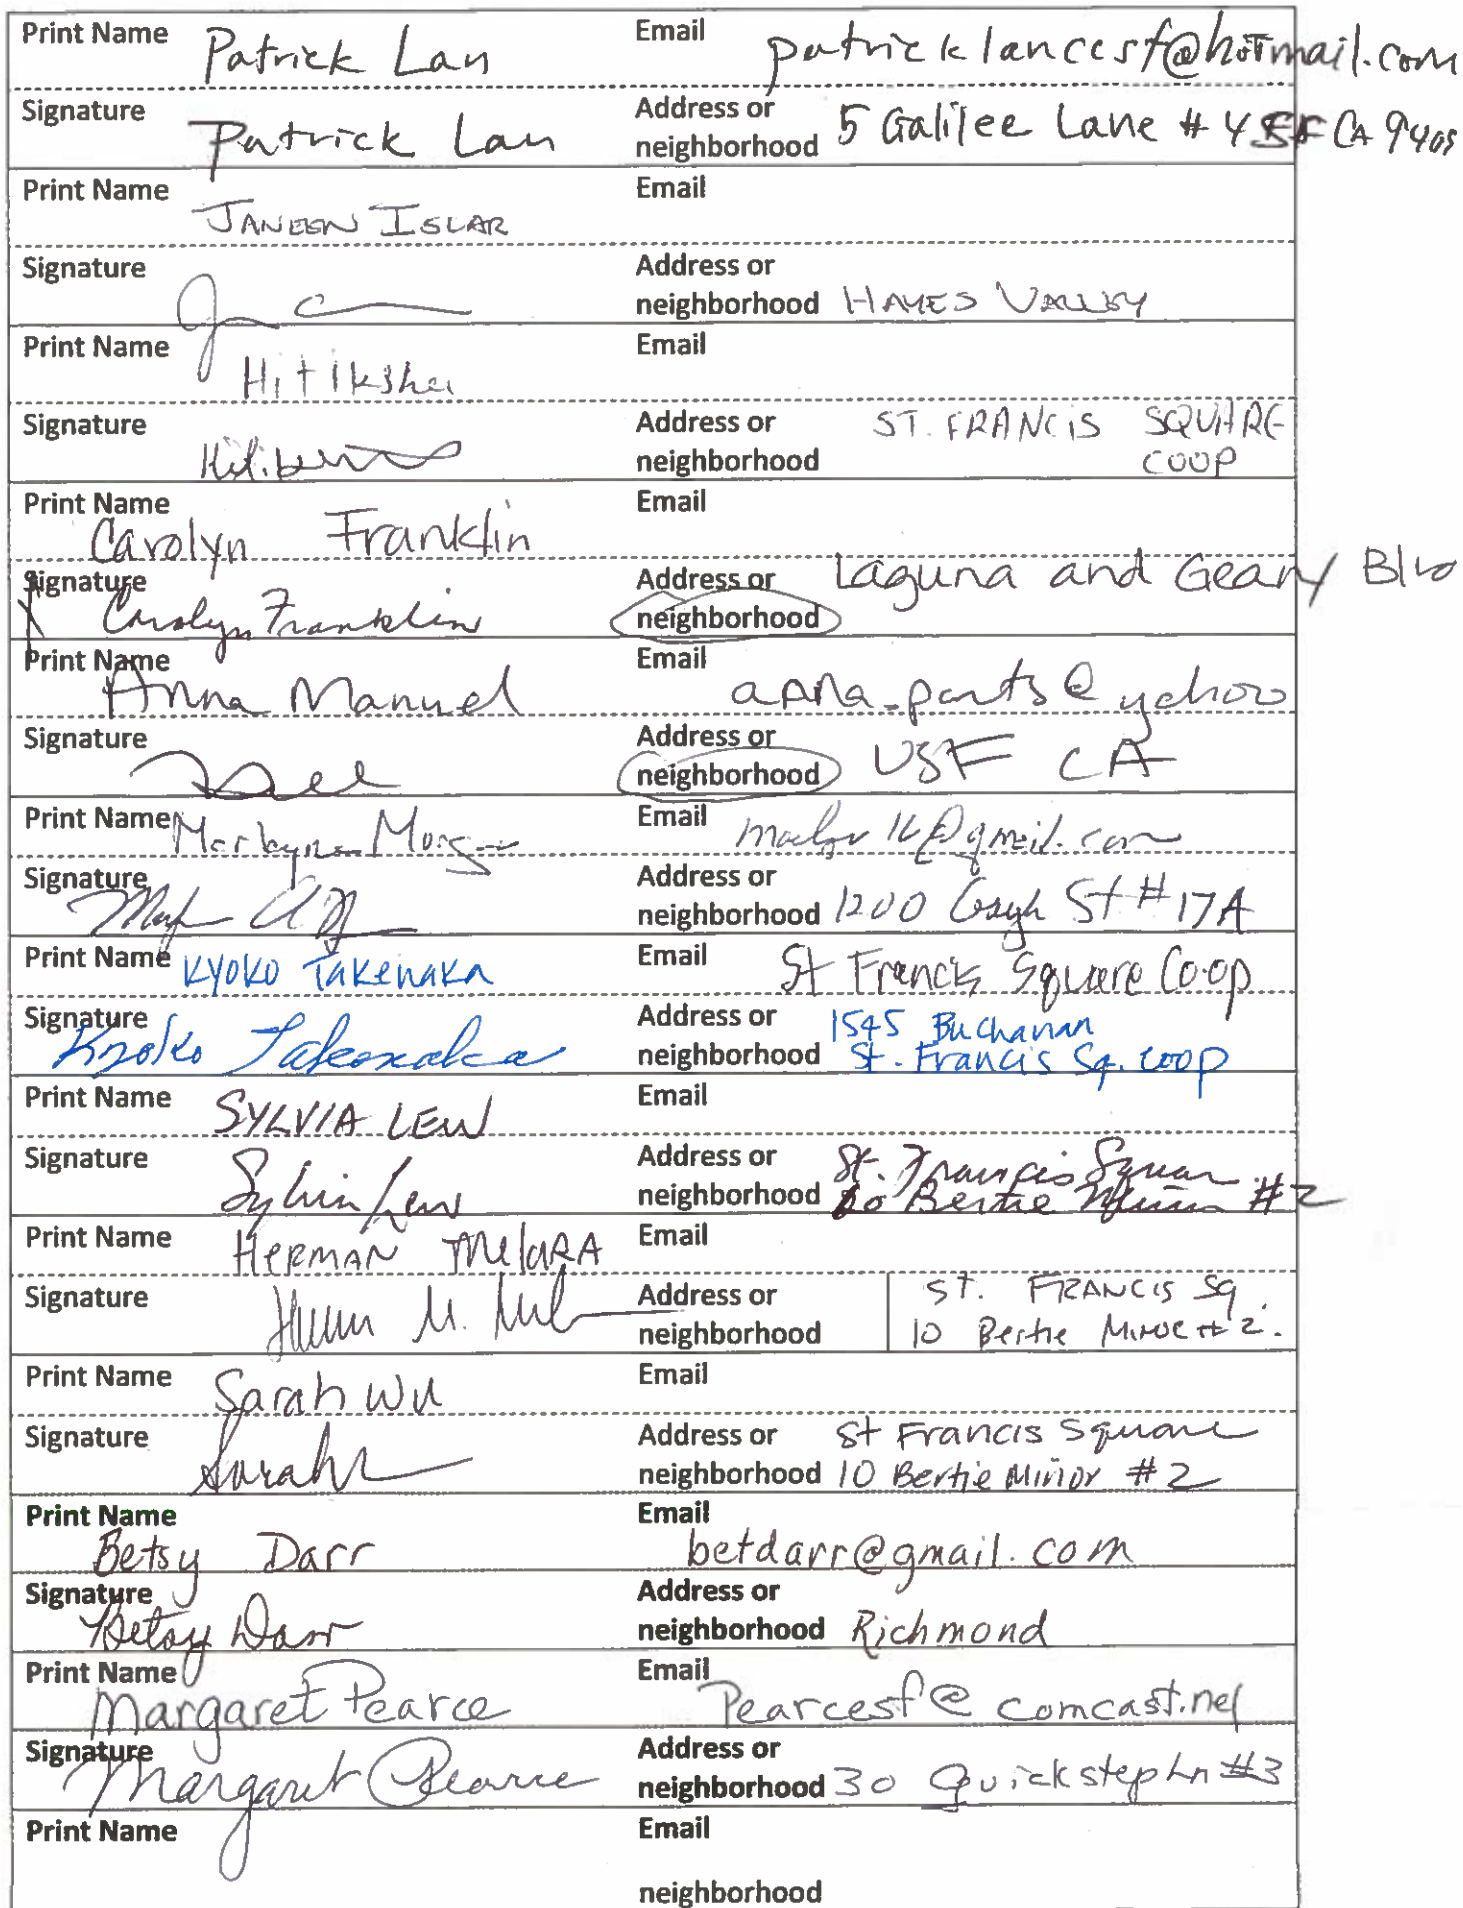 Print Name Patrick Lan Email patricklancesf@hotmail.com
Signature Patrick Lan Address or neighborhood 5 Galilee Lane #4 SF CA 9409
Print Name JANEEN ISLAR Email
Signature Address or neighborhood HAYES VALLEY
Print Name Hitiksha Email
Signature Address or neighborhood ST. FRANCIS SQUARE COOP
Print Name Carolyn Franklin Email
Signature Carolyn Franklin Address or neighborhood Laguna and Geary Blvd
Print Name Anna Manuel Email anna-pants@yahoo
Signature Address or neighborhood USF CA
Print Name Email @gmail.com
Signature Address or neighborhood 1200 St #17A
Print Name KYOKO TAKENAKA Email St Francis Square Co-op
Signature Kyoko Takenaka Address or neighborhood 1545 Buchanan
St. Francis Sq. coop
Print Name SYLVIA LEW Email
Signature Sylvia Lew Address or neighborhood St. Francis Square
Bertie Minor #2
Print Name HERMAN MelARA Email
Signature Address or neighborhood ST. FRANCIS Sq.
10 Bertie Minor #2.
Print Name Sarah Wu Email
Signature Sarah Address or neighborhood St Francis Square
10 Bertie Minor #2
Print Name Betsy Darr Email betdarr@gmail.com
Signature Betsy Darr Address or neighborhood Richmond
Print Name Margaret Pearce Email Pearcesf@comcast.net
Signature Margaret Pearce Address or neighborhood 30 Quickstep Ln #3
Print Name Email
neighborhood